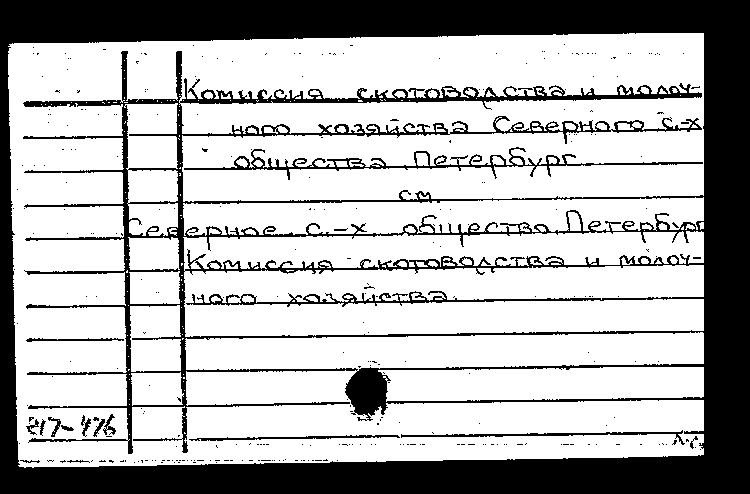 Комиссия скотоводства и молоч-
ного хозяйства Северного с.-х.
общества. Петербург
см.
Северное с.-х. общество. Петербург
Комиссия скотоводства и молоч-
ного хозяйства.
217-476